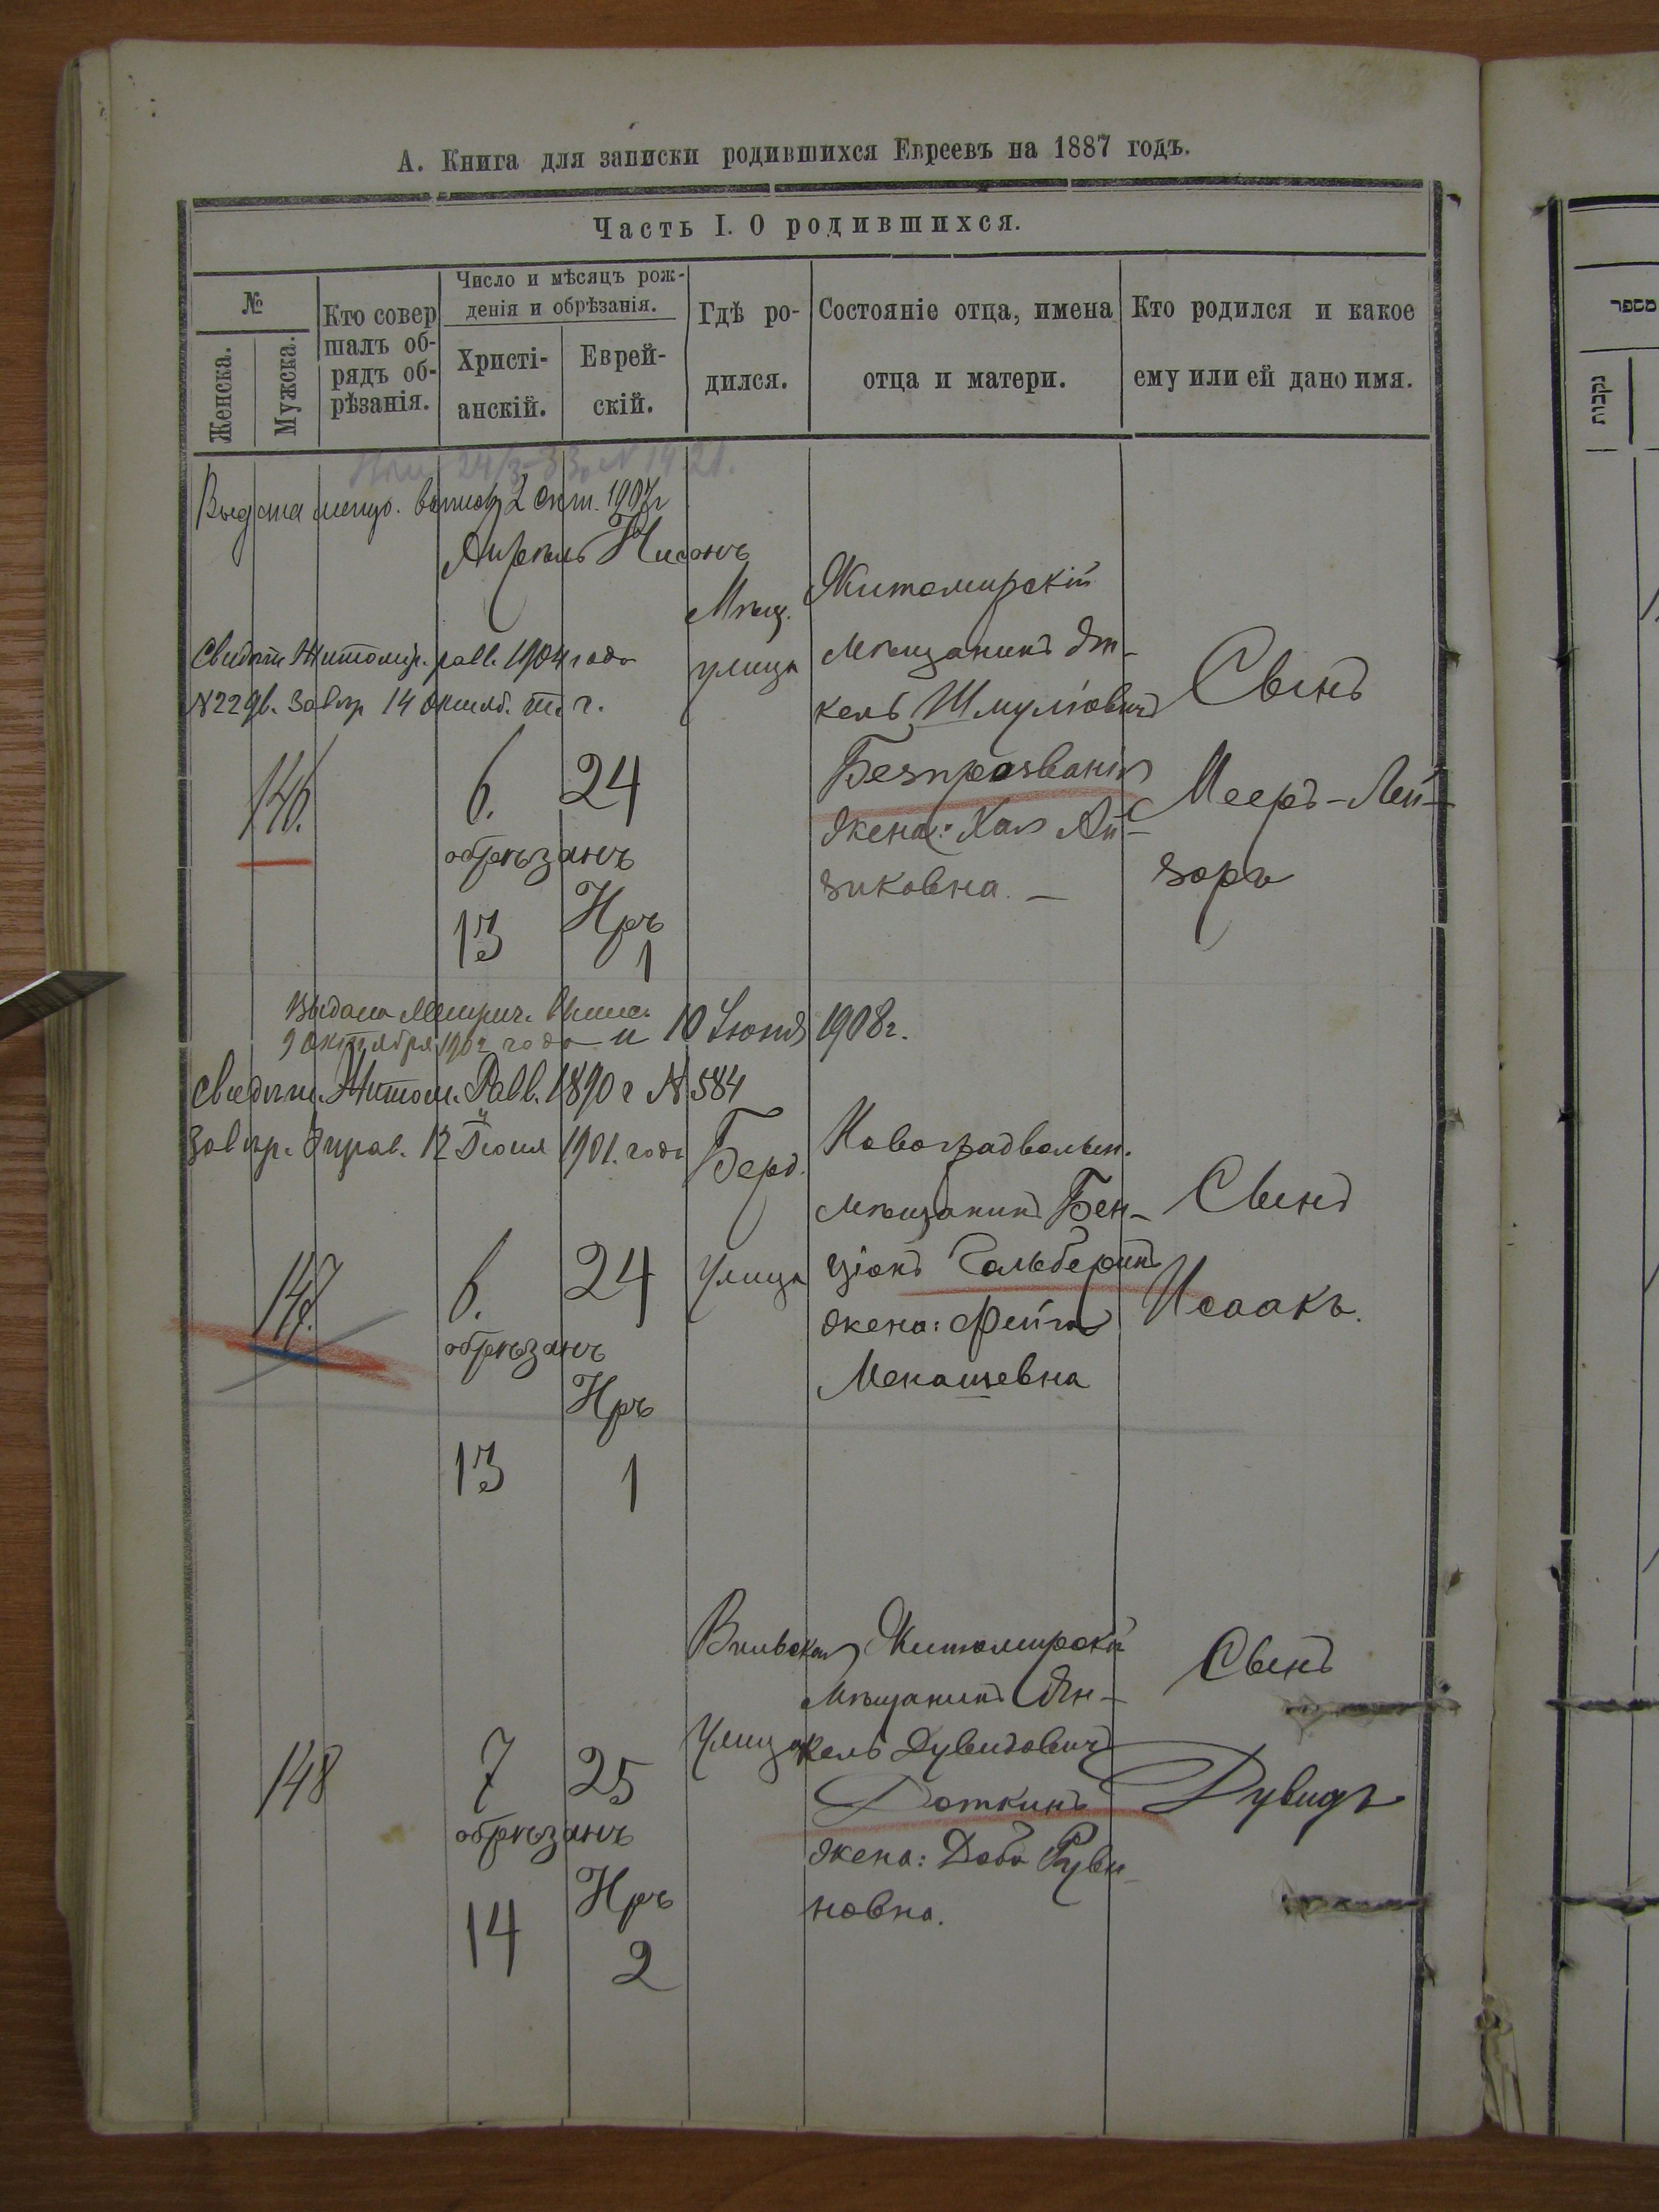 А. Книга для записки родившихся Евреевъ на 1887 годъ.
Часть I. О родившихся.
№
Женска.
Мужска.
Кто совер
шалъ об-
рядъ об-
рѣзанія.
Число и мѣсяцъ рож-
денія и обрѣзанія.
Христі-
анскій.
Еврей-
скій.
Гдѣ ро-
дился.
Состояніе отца, имена
отца и матери.
Кто родился и какое
ему или ей дано имя.
24/3-83, N 1421.
Выдана 2 Окт. 1907г
Апрель Нисонъ
Свидѣт. Житомир. равв. 1904 года
N 14 Октяб. т. г.
146.
6. 24
обрезанъ
Иръ
13 1
Мѣщ.
улица
Житомирскій
Мѣщанинъ Ян-
кель Шмулювичъ
Безпрозванія
жена: Хая Ай-
зиковна. —
Сынъ
Мееръ-Лей-
зоръ
Выдана Метрич. Выпис.
9 октября 1902 года и 10 Іюня 1908г.
Свидѣт. Житом. Равв. 1890 г N 584
Завѣр. Управ. 12 Іюня 1901. года
147.
6. 24
обрезанъ
Иръ
13 1
Берд.
Улица
Новоградволын.
мѣщанинъ Бен-
ціонъ Гольберинъ
жена: Фейга
Менашевна
Сынъ
Исаакъ.
148
7 25
обрезанъ
Иръ
14 2
Вильская
Улица
Житомирскій
Мѣщанинъ Ян-
кель Дувидовичъ
Доткинъ
жена: Доба Руви-
новна.
Сынъ
Дувидъ
מספר
נקבות